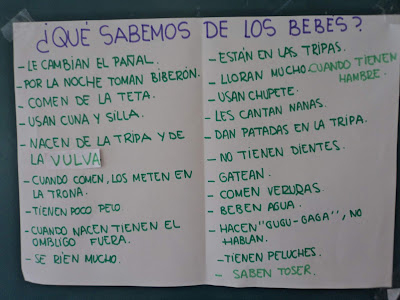 ¿QUÉ SABEMOS DE LOS BEBES?
- LE CAMBIAN EL PAÑAL.
- POR LA NOCHE TOMAN BIBERÓN.
- COMEN DE LA TETA.
- USAN CUNA Y SILLA.
- NACEN DE LA TRIPA Y DE
LA VULVA
- CUANDO COMEN, LOS METEN EN
LA TRONA.
- TIENEN POCO PELO
- CUANDO NACEN TIENEN EL
OMBLIGO FUERA.
- SE RIEN MUCHO.
- ESTÁN EN LAS TRIPAS.
- LLORAN MUCHO CUANDO TIENEN
HAMBRE.
- USAN CHUPETE.
- LES CANTAN NANAS.
- DAN PATADAS EN LA TRIPA.
- NO TIENEN DIENTES.
- GATEAN.
- COMEN VERURAS.
- BEBEN AGUA.
- HACEN "GUGU-GAGA", NO
HABLAN.
- TIENEN PELUCHES.
- SABEN TOSER.